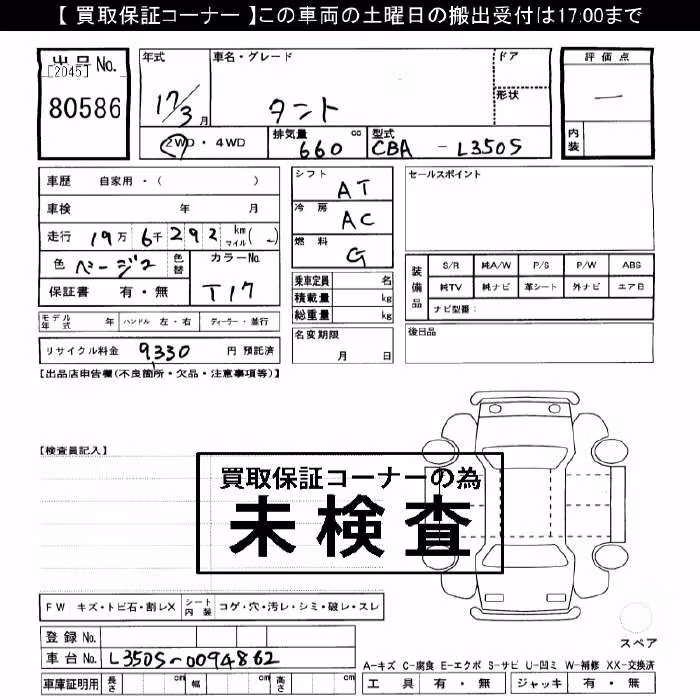 【 買取保証コーナー 】この車両の土曜日の搬出受付は17:00まで
出品No.
[2045]
80586
年式
17/3月
車名・グレード
タント
ドア
形状
評価点
—
内装
2WD・4WD
排気量 660 cc
型式 CBA - L350S
車歴 自家用・( )
車検 年 月
走行 19万6千292 km マイル(-)
色 ベージュ
色替
カラーNo. T17
保証書 有・無
モデル年式 年
ハンドル 左・右
ディーラー・並行
リサイクル料金 9330 円 預託済
シフト AT
冷房 AC
燃料 G
乗車定員 名
積載量 kg
総重量 kg
名変期限
月 日
セールスポイント
装備品
S/R 純A/W P/S P/W ABS
純TV 純ナビ 革シート 外ナビ エアB
ナビ型番:
後日品
【出品店申告欄(不良箇所・欠品・注意事項等)】
【検査員記入】
買取保証コーナーの為
未検査
FW キズ・トビ石・割レX
シート内装 コゲ・穴・汚レ・シミ・破レ・スレ
登録No.
車台No. L350S-0094862
車庫証明用 長さ cm 幅 cm 高さ cm
スペア
A-キズ C-腐食 E-エクボ S-サビ U-凹ミ W-補修 XX-交換済
工具 有・無
ジャッキ 有・無